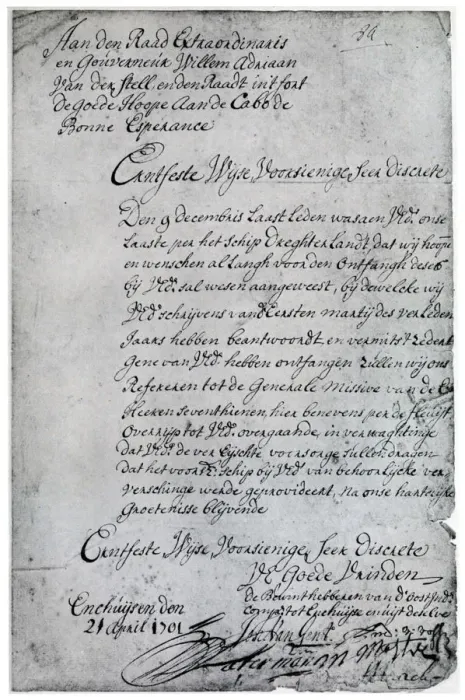 34
Aan den Raad Extraordinaris
en Gouverneur Willem Adriaan
Van der Stell, en den Raadt in't fort
de goede hoope Aan de Cabo de
Bonne Esperance
Erntfeste Wijse, Voorsienige, Seer Discrete
Den 9 decembris Laast Leden was aen UEd. onse
Laaste per het schip Dreghterlandt, dat wij hoope
en wenschen al langh voor den Ontfangh deses
bij UEd. sal wesen aangeweest, bij dewelcke wij
UEds. schrijvens vanden Eersten martij des verleden
Jaars hebben beantwoordt, en vermits t'zedert
Gene van UEd. hebben ontfangen zullen wij ons
Refereren tot de Generale Missive van de
Heeren seventhienen, hier benevens per de fluijt
Overrijp tot UEd. overgaande, in verwaghtinge
dat UEd. de vereijschte voorsorge sullen dragen
dat het voorsz. schip bij UEd. van behoorlijcke ver-
verschinge werde geprovideert, na onse hartelijke
Groetenisse blijvende
Erntfeste Wijse, Voorsienige, Seer Discrete
UE. Goede Vrinden
de Bewinthebberen van d'oost Ind.
comp. tot Enchuijse en uijt deselve
Enchuijsen den
21 April 1701